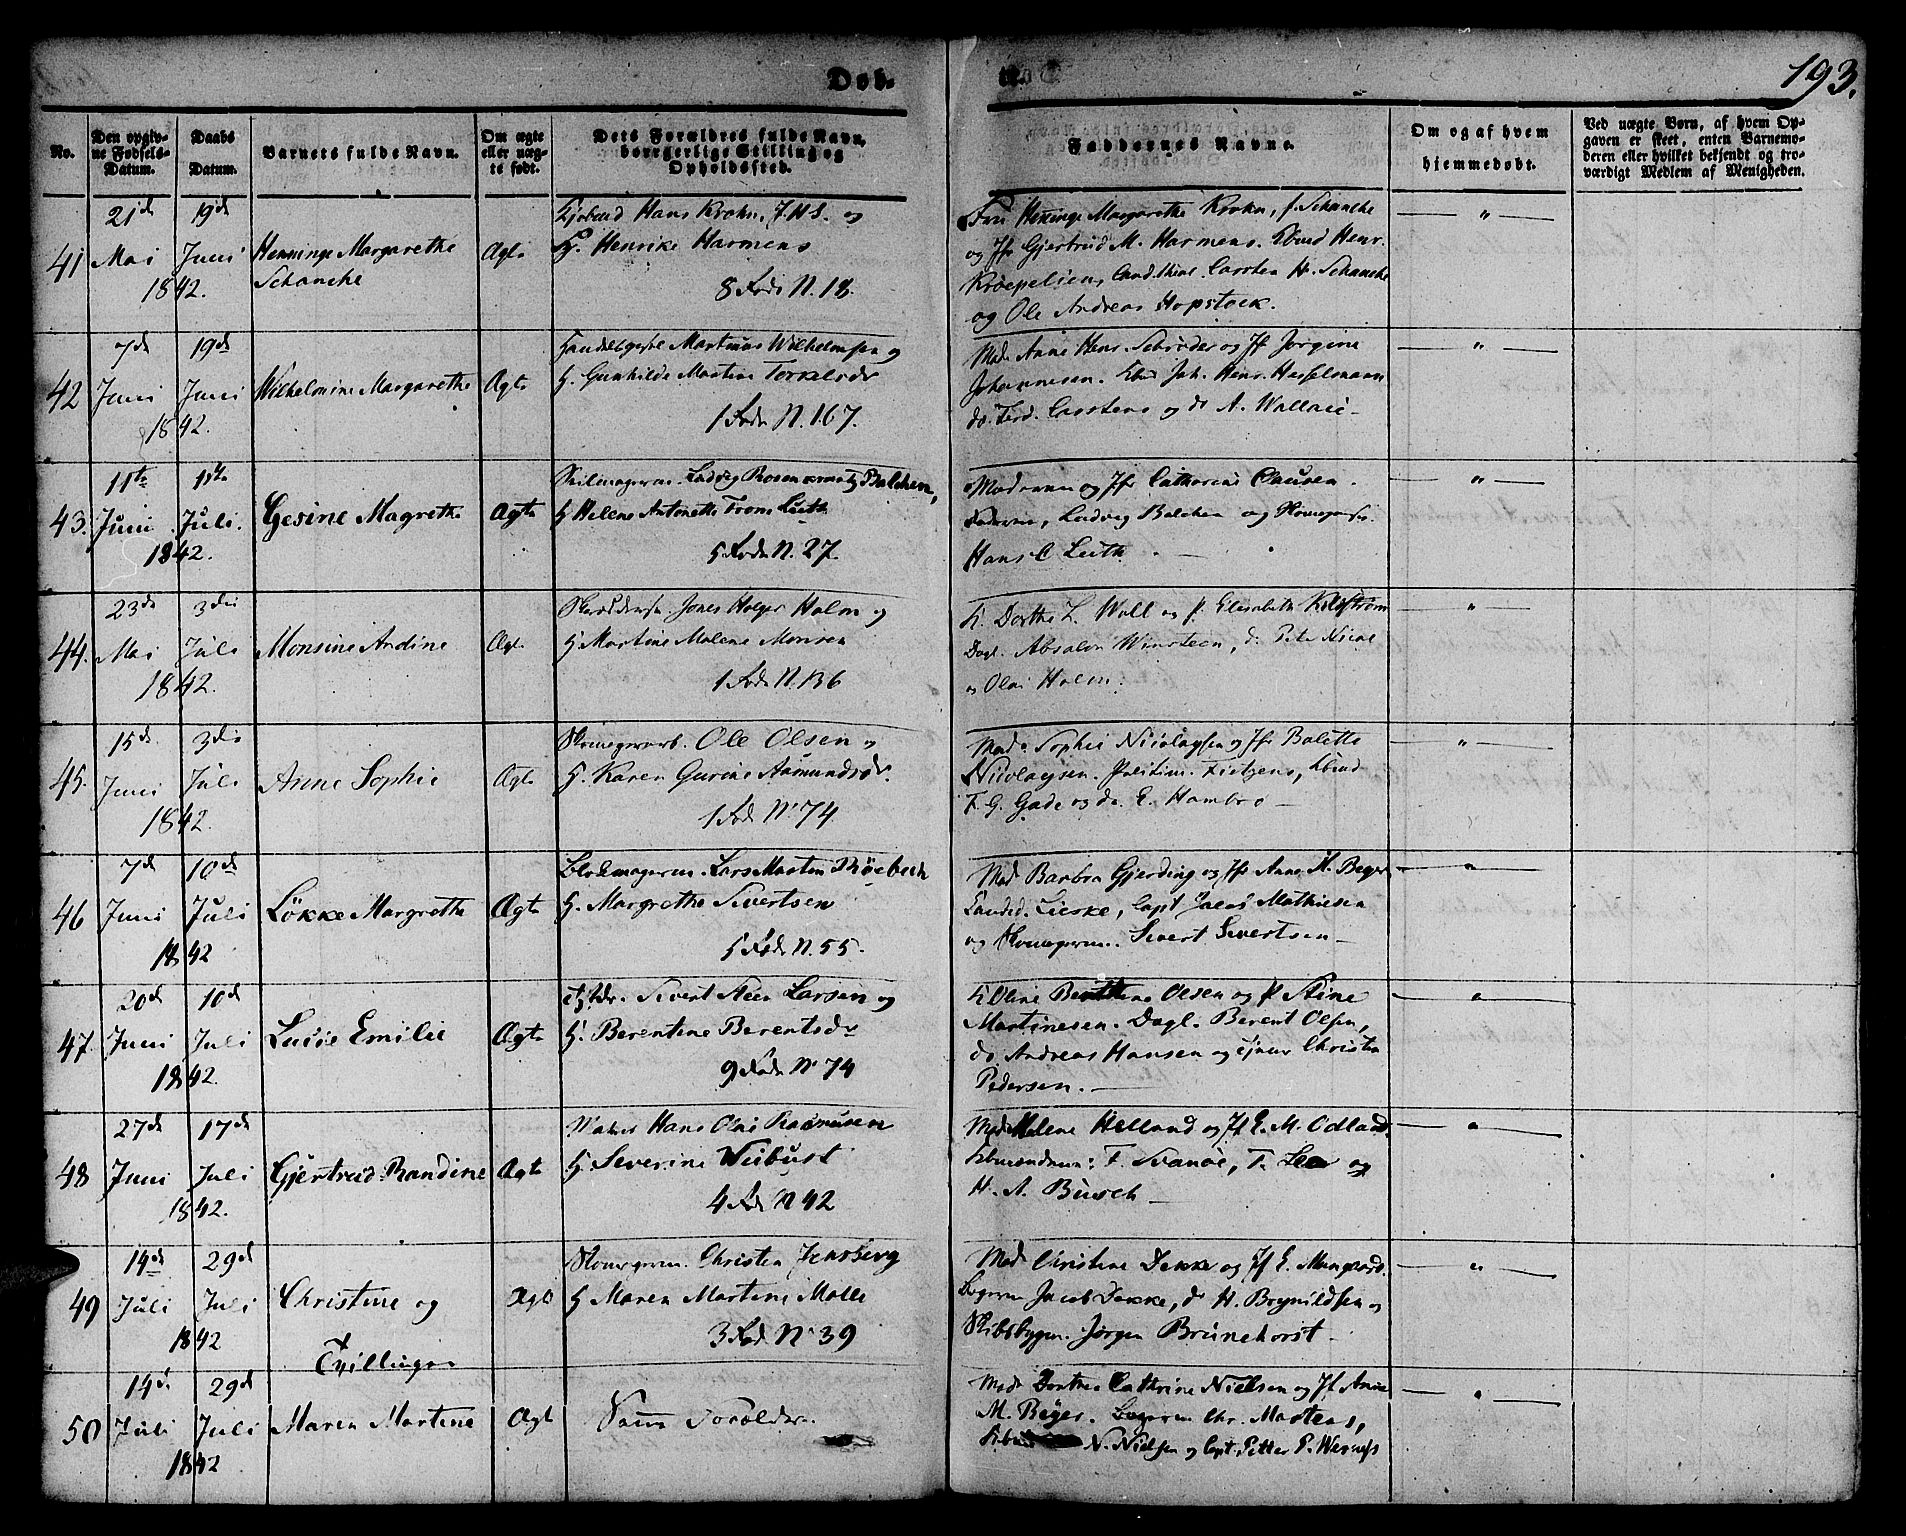 Døb.
193.
No.
Den opgivne Fødsels-Datum.
Daabs Datum.
Barnets fulde Navn.
Om ægte eller uægte født.
Dets Forældres fulde Navn, borgerlige Stilling og Opholdssted.
Faddernes Navne.
Om og af hvem hjemmedøbt.
Ved uægte Børn, af hvem Opgaven er skeet, enten Barnemoderen eller hvilket bekjendt og troværdigt Medlem af Menigheden.
41 21de Mai 19de Juni 1842.
Henninge Margarethe
Schancke
Ægte
Hans Krohn, og
H. Henrike Harmens
8 Rode N. 18.
Fru Henninge Margarethe Krohn, f. Schancke
og Jfr Gjertrud M. Harmens. Henr.
Krøepelien, Carsten H. Schancke
og Ole Andreas Hopstock.
42 7de Juni 19de Juni 1842.
Wilhelmine Margarethe
Ægte
Martinus Wilhelmsen og
H. Gunhilde Martine Torkelsdr
1 Rode N. 167.
Mad. Anne Henr. Schrøder og Jf Jørgine
Johannesen. Joh. Henr. Hasselmann
do. Ferd. Carstens og do A. Wallace
43. 11te Juni 1ste Juli. 1842.
Gesine Magrethe
Ægte
Ludvig Rosenkrantz Balchen,
H Helene Antonette Leuth
5 Rode N. 27.
Madammen og Jfr Cathrine Clausen
Ludvig Balchen og
Hans C Leuth.
44. 23de Mai 3die Juli 1842.
Monsine Andine
Ægte
Jones Holger Holm og
H Martine Malene Monsen
1 Rode N. 136
K. Dorthe L. Wall og P. Elisabeth
Dagl. Absalon Winsteen, do Peter
og Olai Holm.
45. 15de Juni 3die Juli 1842.
Anne Sophie
Ægte
Ole Olsen og
H. Karen Gurine Aamundsdr.
1 Rode N. 74
Mad. Sophie Nicolaysen og Jfr Bolette
Nicolaysen.
F. G. Gade og do. E. Hambro
46 7de Juni 10de Juli 1842
Løkke Margrethe
Ægte
Blokmagerm. Lars Morten
H. Margrethe Sivertsen
5 Rode N. 55.
Mad Barbra Gjerding og Jfr Anne M. Beyer
Capt Jacob Mathiesen
og Skomagerm. Sivert Sivertsen
47. 20de Juni 10de Juli 1842.
Lucie Emilie
Ægte
Sivert Larsen og
H. Berentine Berentsdr
9 Rode N. 74
K Oline Olsen og P Stine
Martinesen. Dagl. Berent Olsen,
do Andreas Hansen og Christen
Pedersen.
48 27de Juni 17de Juli 1842.
Gjertrud Randine
Ægte
Hans Olai Rasmusen
H Severine Wiibust
4 Rode N 42
Mad Malene Helland og Jf E. M. Odland.
F. Svanøe, og
H. A. Busch
49 14de Juli 29de Juli 1842
Christine og
Ægte
Skomagerm. Christen Jensberg
H Maren Martine Molle
3 Rode N. 39
Mad Christine Dekke og Jf E. Mungaard.
Bagerm Jacob Dekke, do H. Brynildsen og
Skibsbygm. Jørgen Brunchorst
Tvillinger
50 14de Juli 29de Juli 1842
Maren Martine
Ægte
Samme Forældre
Mad. Dorthe Cathrine Nielsen og Jf Anne
M. Beyer. Bagerm Chr. Martens,
N. Nielsen og Capt. Petter P. Wernøss